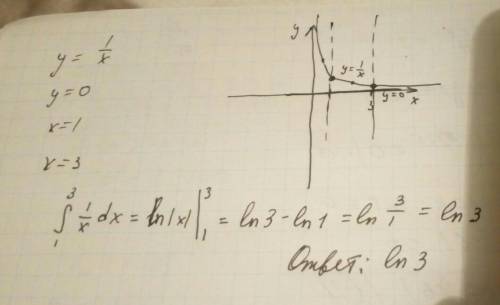 y = 1/x
y=0
x=1
x=3
y
y=1/x
3
y=0
x
∫₁³ 1/x dx = ln|x| |₁³ = ln3 - ln1 = ln 3/1 = ln3
Ответ: ln3